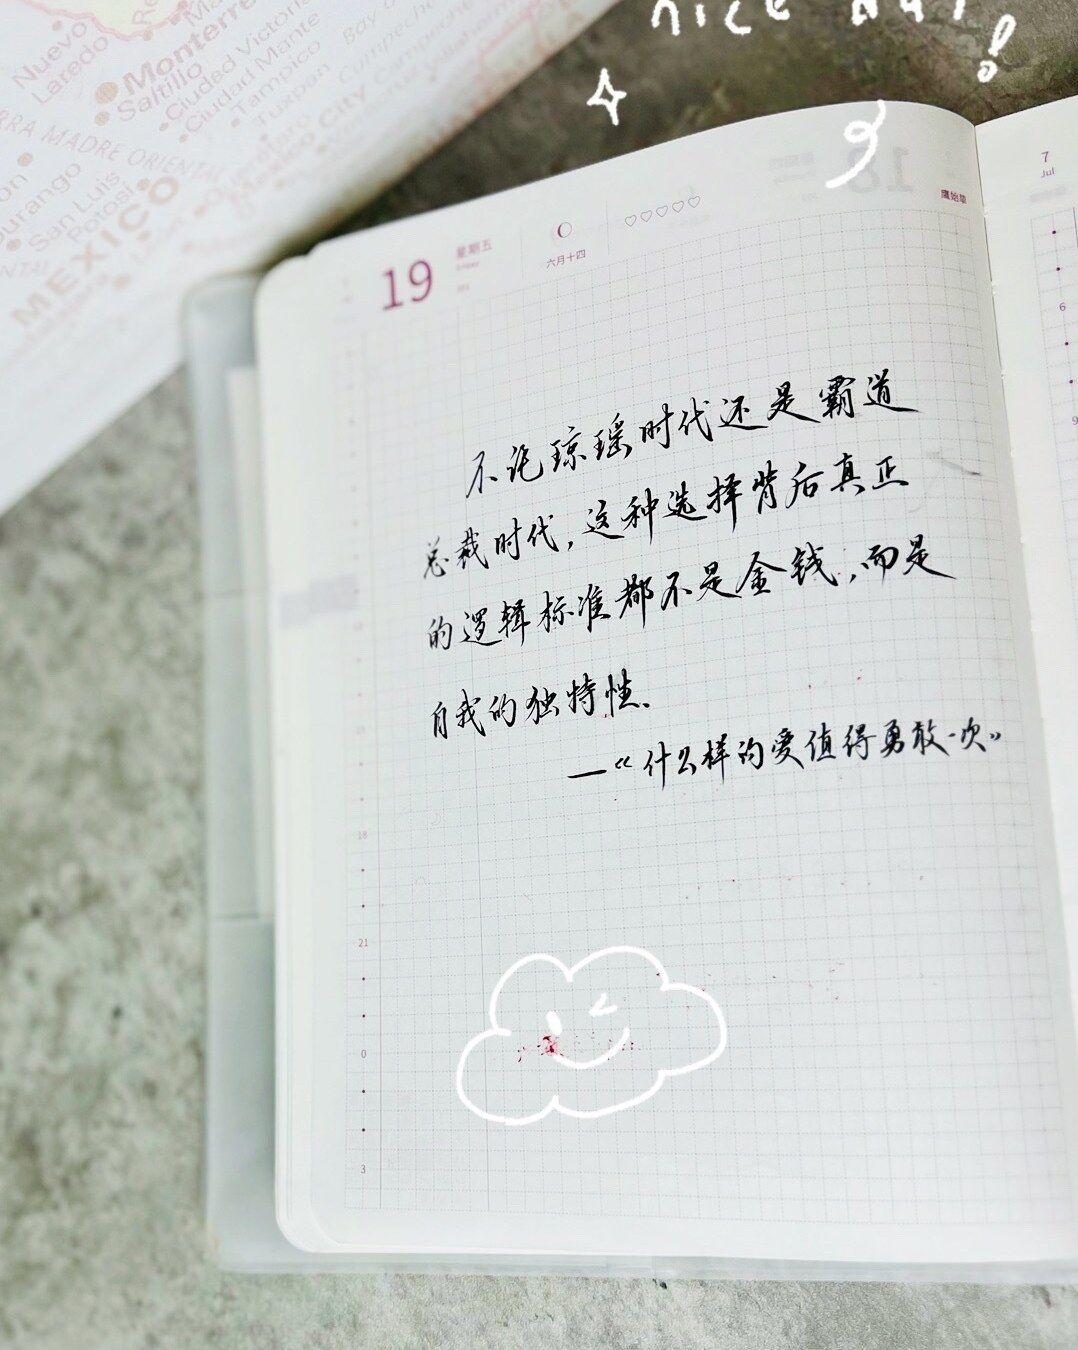 nice day!
Nuevo
Laredo
Monterrey
Saltillo
Ciudad Victoria
Ciudad Mante
Tampico
Tuxpan
Mexico City
MADRE ORIENTAL
Durango
San Luis
Potosi
MEXICO
19
星期五
六月十四
18
鷹始摯
7
Jul
6
9
不论琼瑶时代还是霸道
总裁时代,这种选择背后真正
的逻辑标准都不是金钱,而是
自我的独特性.
—《什么样的爱值得勇敢一次》
18
21
0
3